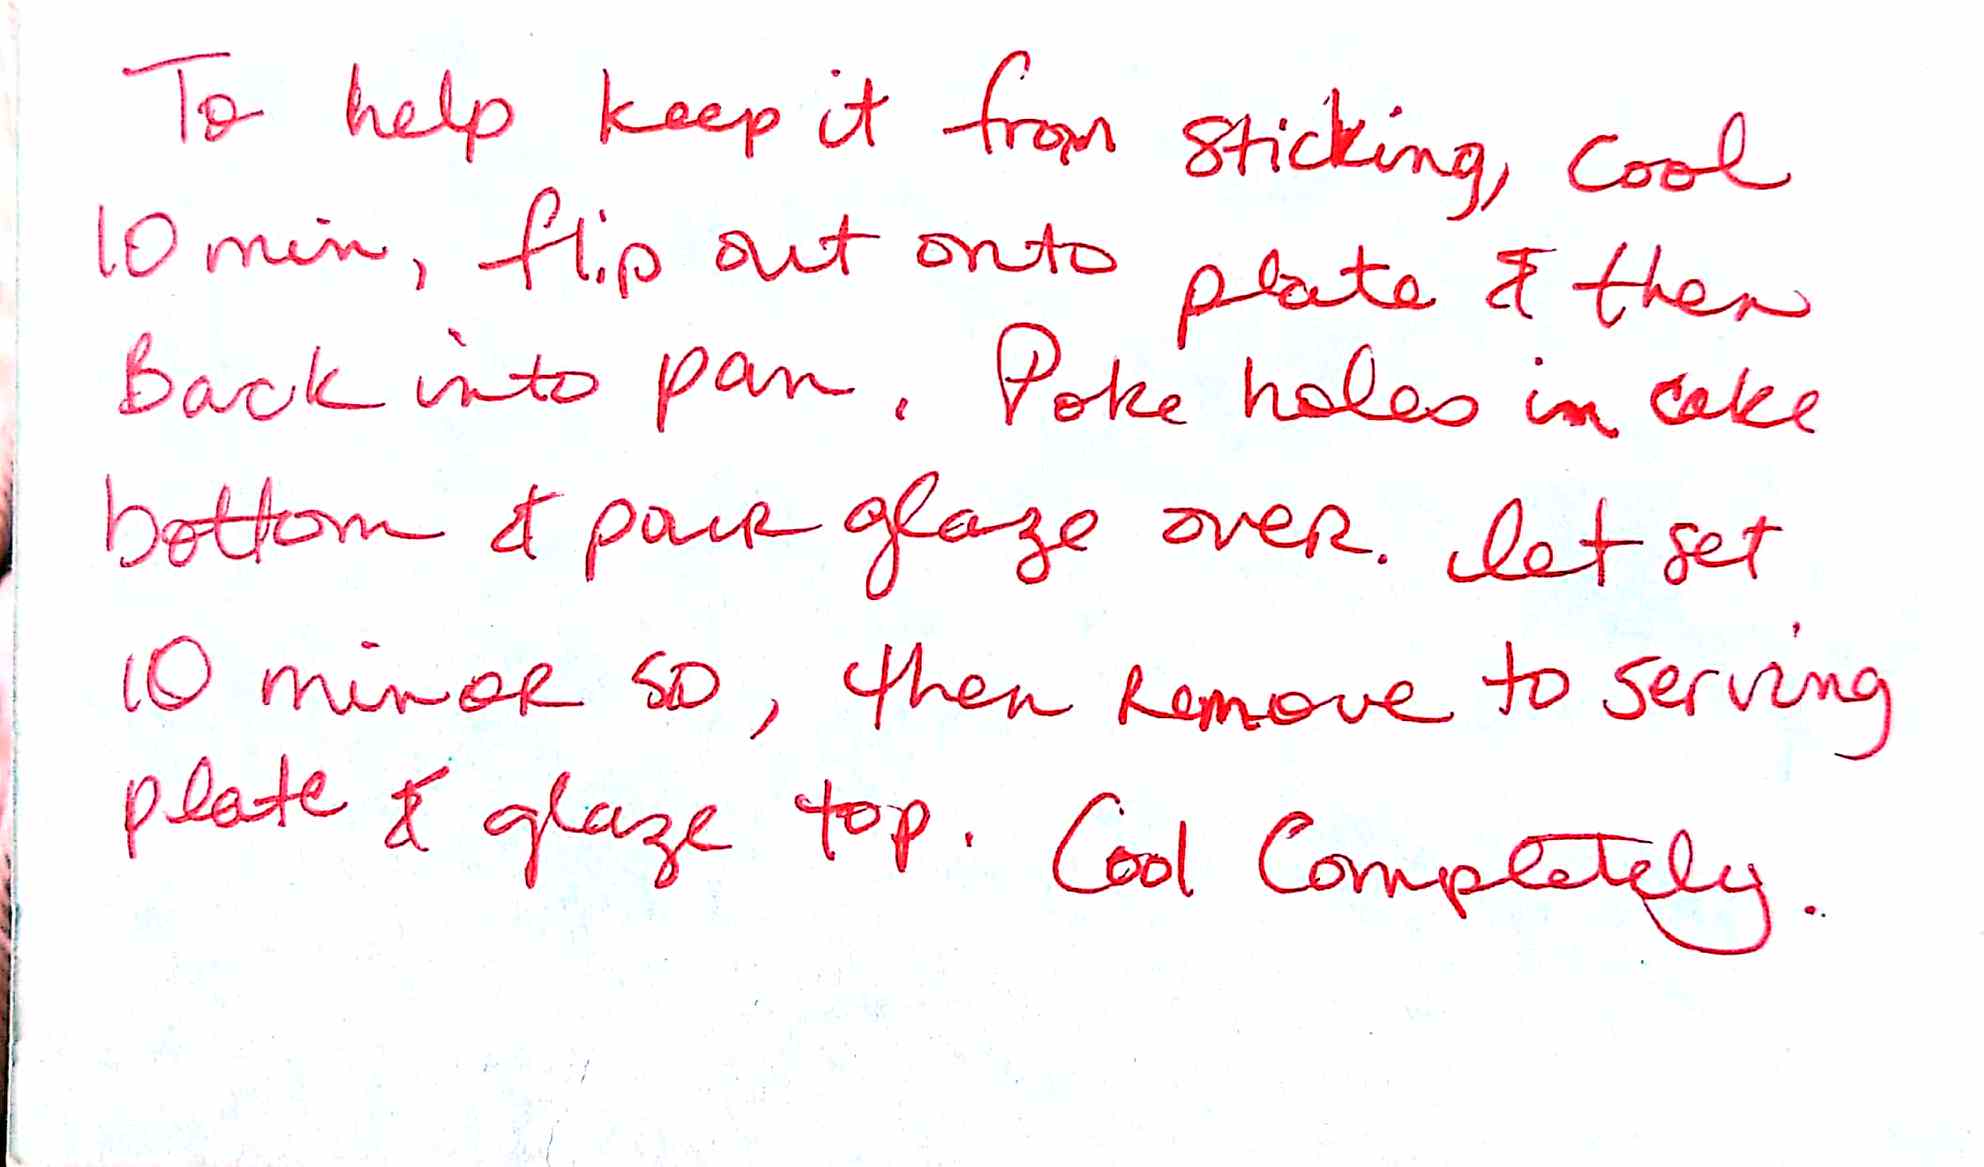 To help keep it from sticking, cool
10 min, flip out onto plate & then
Back into pan. Poke holes in cake
bottom & pour glaze over. let set
10 min or so, then remove to serving
plate & glaze top. Cool Completely.